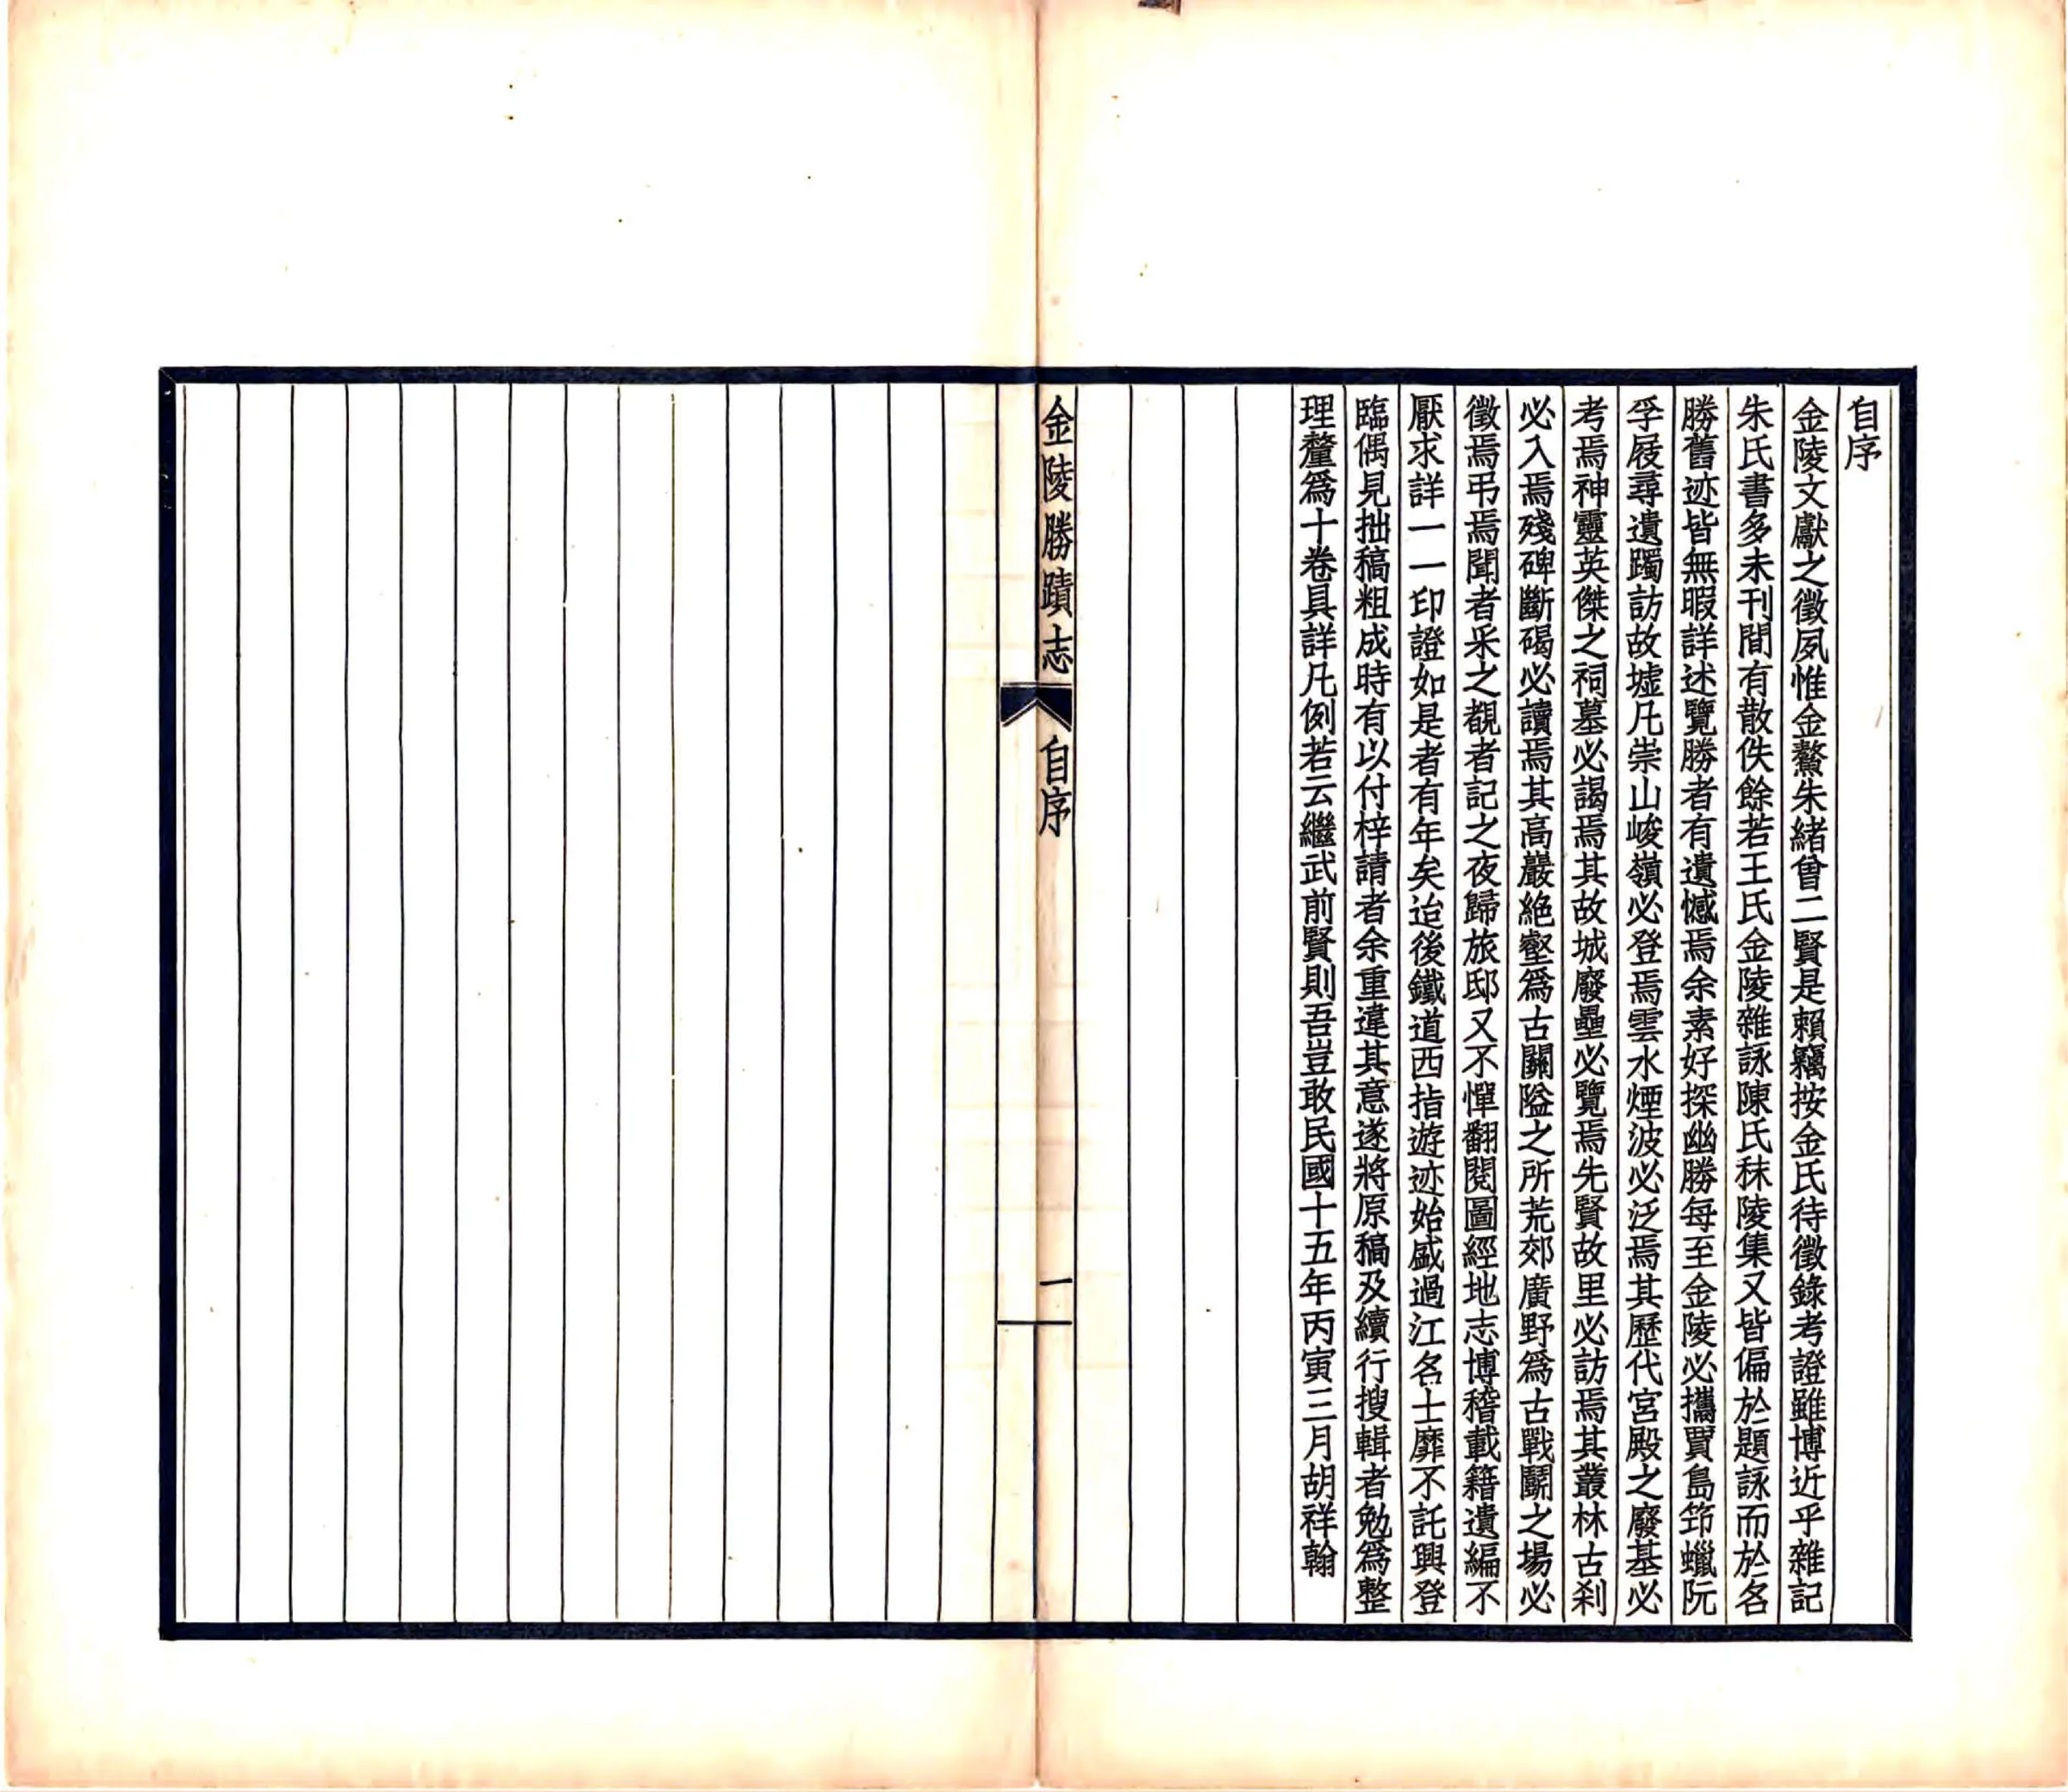 自序
金陵文獻之徵夙惟金鰲朱緒曾二賢是賴竊按金氏待徵錄考證雖博近乎雜記
朱氏書多未刊間有散佚餘若王氏金陵雜詠陳氏秣陵集又皆偏於題詠而於名
勝舊迹皆無暇詳述覽勝者有遺憾焉余素好探幽勝每至金陵必攜賈島笻蠟阮
孚屐尋遺躅訪故墟凡崇山峻嶺必登焉雲水煙波必泛焉其歷代宮殿之廢基必
考焉神靈英傑之祠墓必謁焉其故城廢壘必覽焉先賢故里必訪焉其叢林古刹
必入焉殘碑斷碣必讀焉其高巖絶壑爲古關隘之所荒郊廣野爲古戰鬭之場必
徵焉弔焉聞者釆之覩者記之夜歸旅邸又不憚翻閱圖經地志博稽載籍遺編不
厭求詳一一印證如是者有年矣迨後鐵道西指遊迹始盛過江名士靡不託興登
臨偶見拙稿粗成時有以付梓請者余重違其意遂將原稿及續行搜輯者勉爲整
理釐爲十卷具詳凡例若云繼武前賢則吾豈敢民國十五年丙寅三月胡祥翰
金陵勝蹟志
自序
一